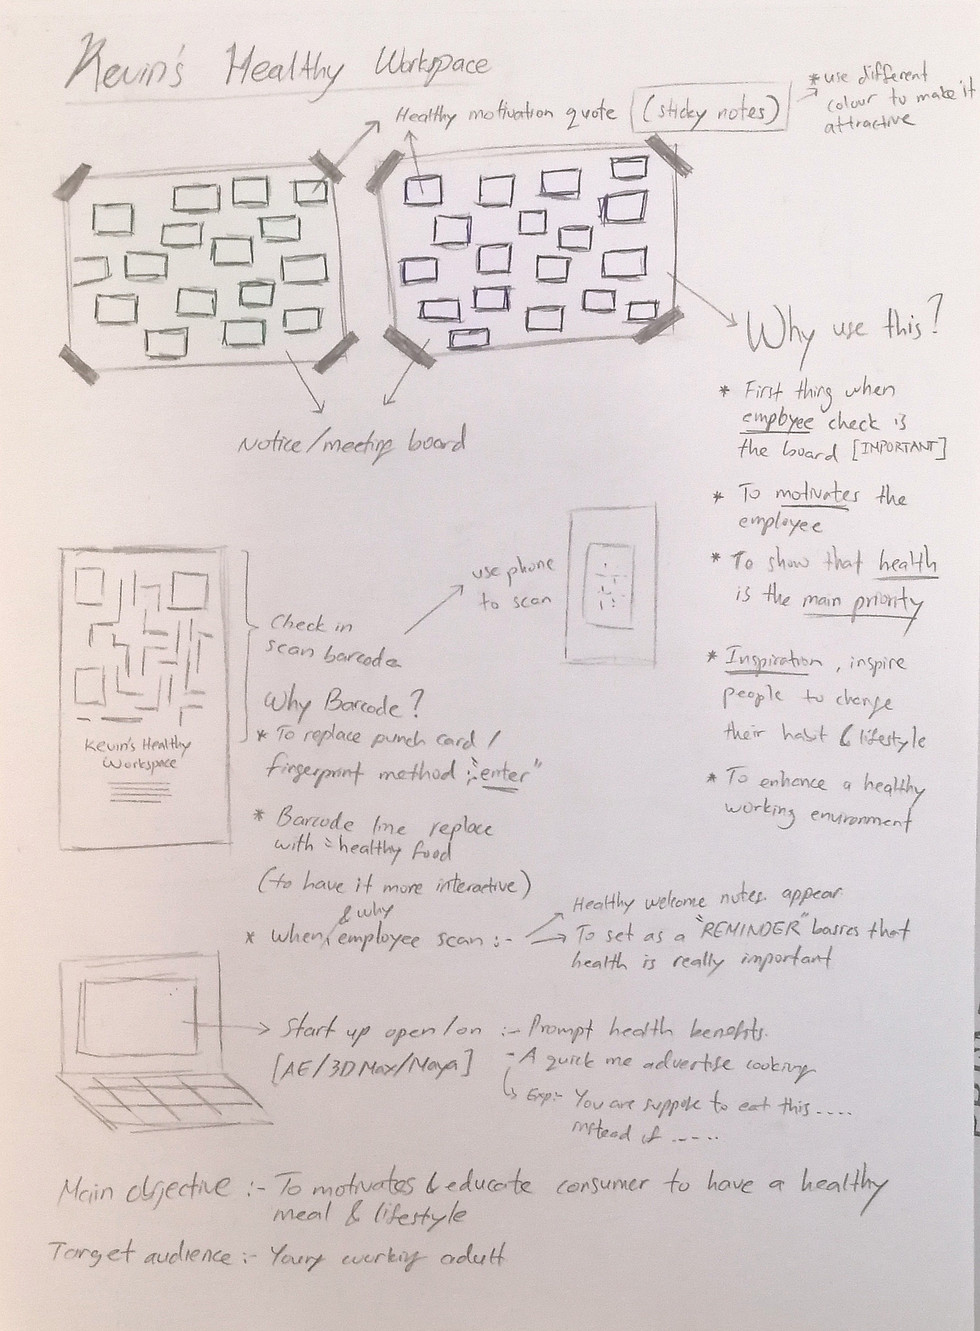 Kevin's Healthy Workspace
Healthy motivation quote (sticky notes)
* use different
colour to make it
attractive
Notice/meeting board
Why use this?
* First thing when
employee check is
the board [IMPORTANT]
* To motivates the
employee
* To show that health
is the main priority
* Inspiration, inspire
people to change
their habit & lifestyle
* To enhance a healthy
working environment
use phone
to scan
Check in
scan barcode
Kevin's Healthy
Workspace
Why Barcode?
* To replace punch card /
fingerprint method "enter"
* Barcode line replace
with healthy food
(to have it more interactive)
& why
* when employee scan :-
Healthy welcome notes appear
To set as a "REMINDER" that
health is really important
Start up open/on :- Prompt health benefits.
[AE/3DMax/Maya]
- A quick advertise cooking
Exp:- You are suppose to eat this ....
instead of .....
Main objective :- To motivates & educate consumer to have a healthy
meal & lifestyle
Target audience :- Young working adult